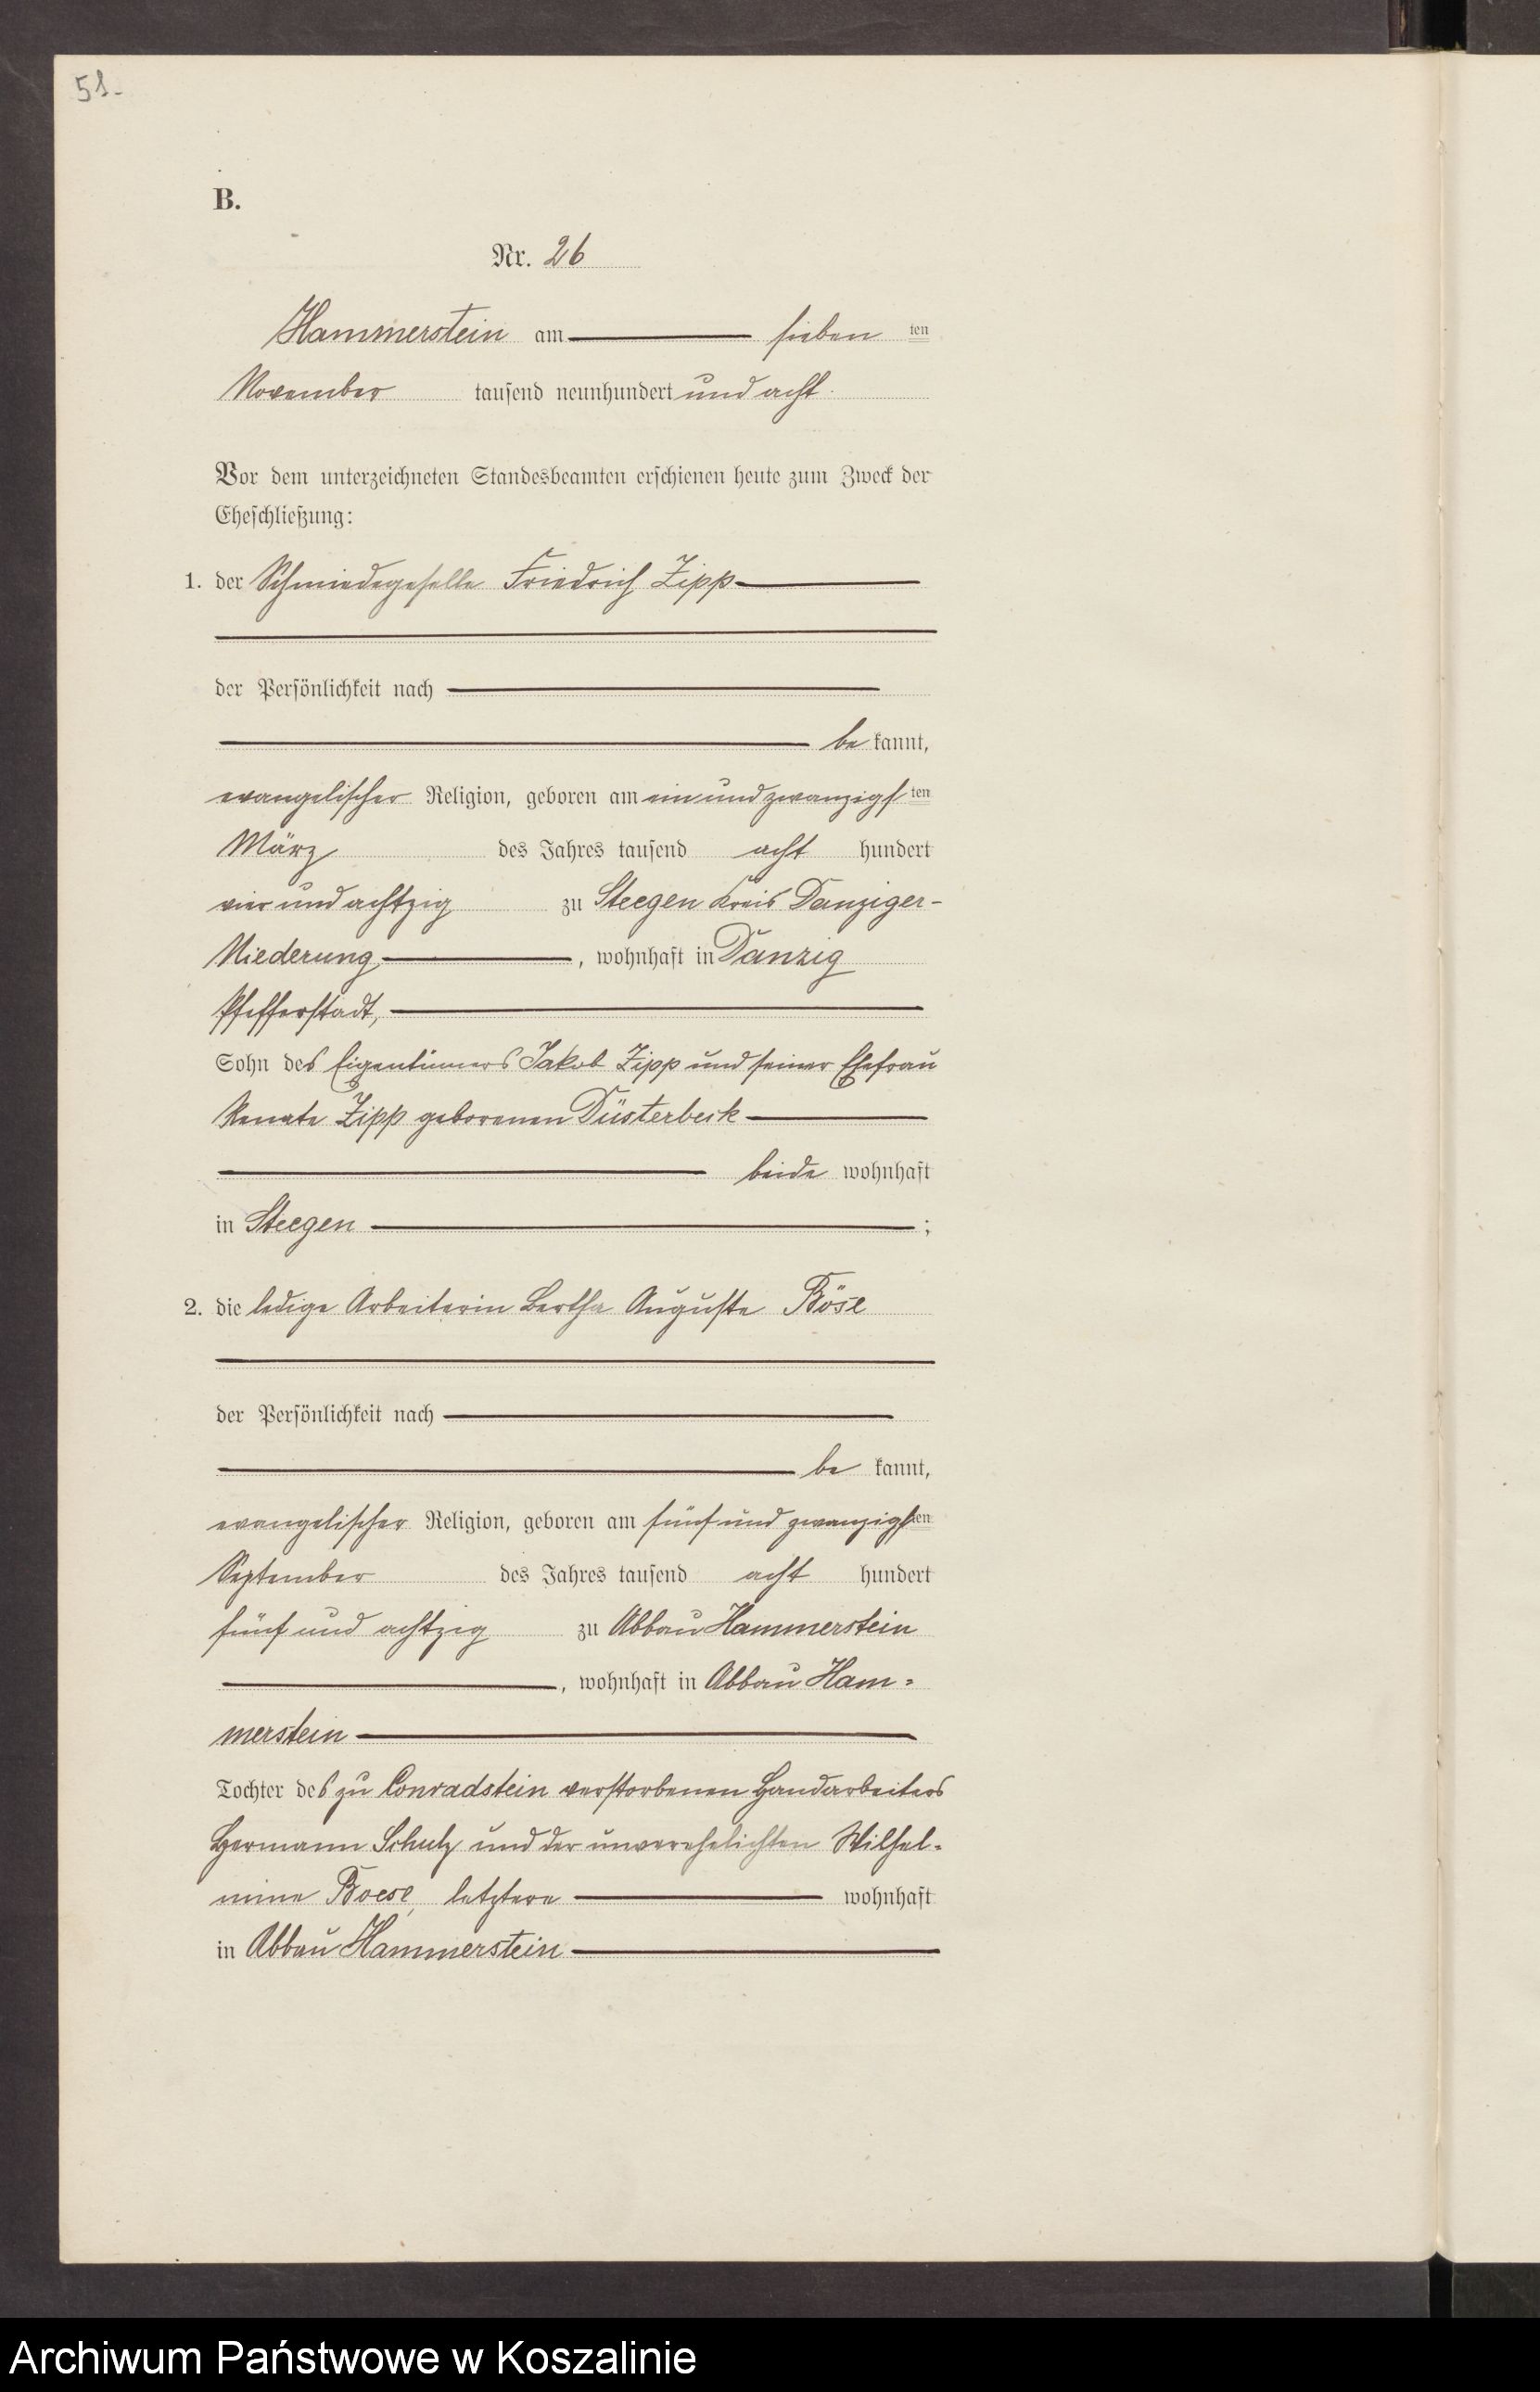 51.
B.
Nr. 26
Hammerstein am sieben ten
November tausend neunhundert und acht
Vor dem unterzeichneten Standesbeamten erschienen heute zum Zweck der
Eheschließung:
1. der Schmiedegeselle Friedrich Zipp
der Persönlichkeit nach
be kannt,
evangelischer Religion, geboren am ein und zwanzigs ten
März des Jahres tausend acht hundert
vier und achtzig zu Steegen Kreis Danziger-
Niederung, wohnhaft in Danzig
Pfefferstadt,
Sohn des Eigentümers Jakob Zipp und seiner Ehefrau
Renate Zipp geborenen Düsterbeck
beide wohnhaft
in Steegen ;
2. die ledige Arbeiterin Bertha Auguste Böse
der Persönlichkeit nach
be kannt,
evangelischer Religion, geboren am fünf und zwanzigs ten
September des Jahres tausend acht hundert
fünf und achtzig zu Abbau Hammerstein
, wohnhaft in Abbau Ham-
merstein
Tochter des zu Conradstein verstorbenen Handarbeiters
Hermann Schulz und der unverehelichten Wilhel-
mine Boese, letztere wohnhaft
in Abbau Hammerstein
Archiwum Państwowe w Koszalinie